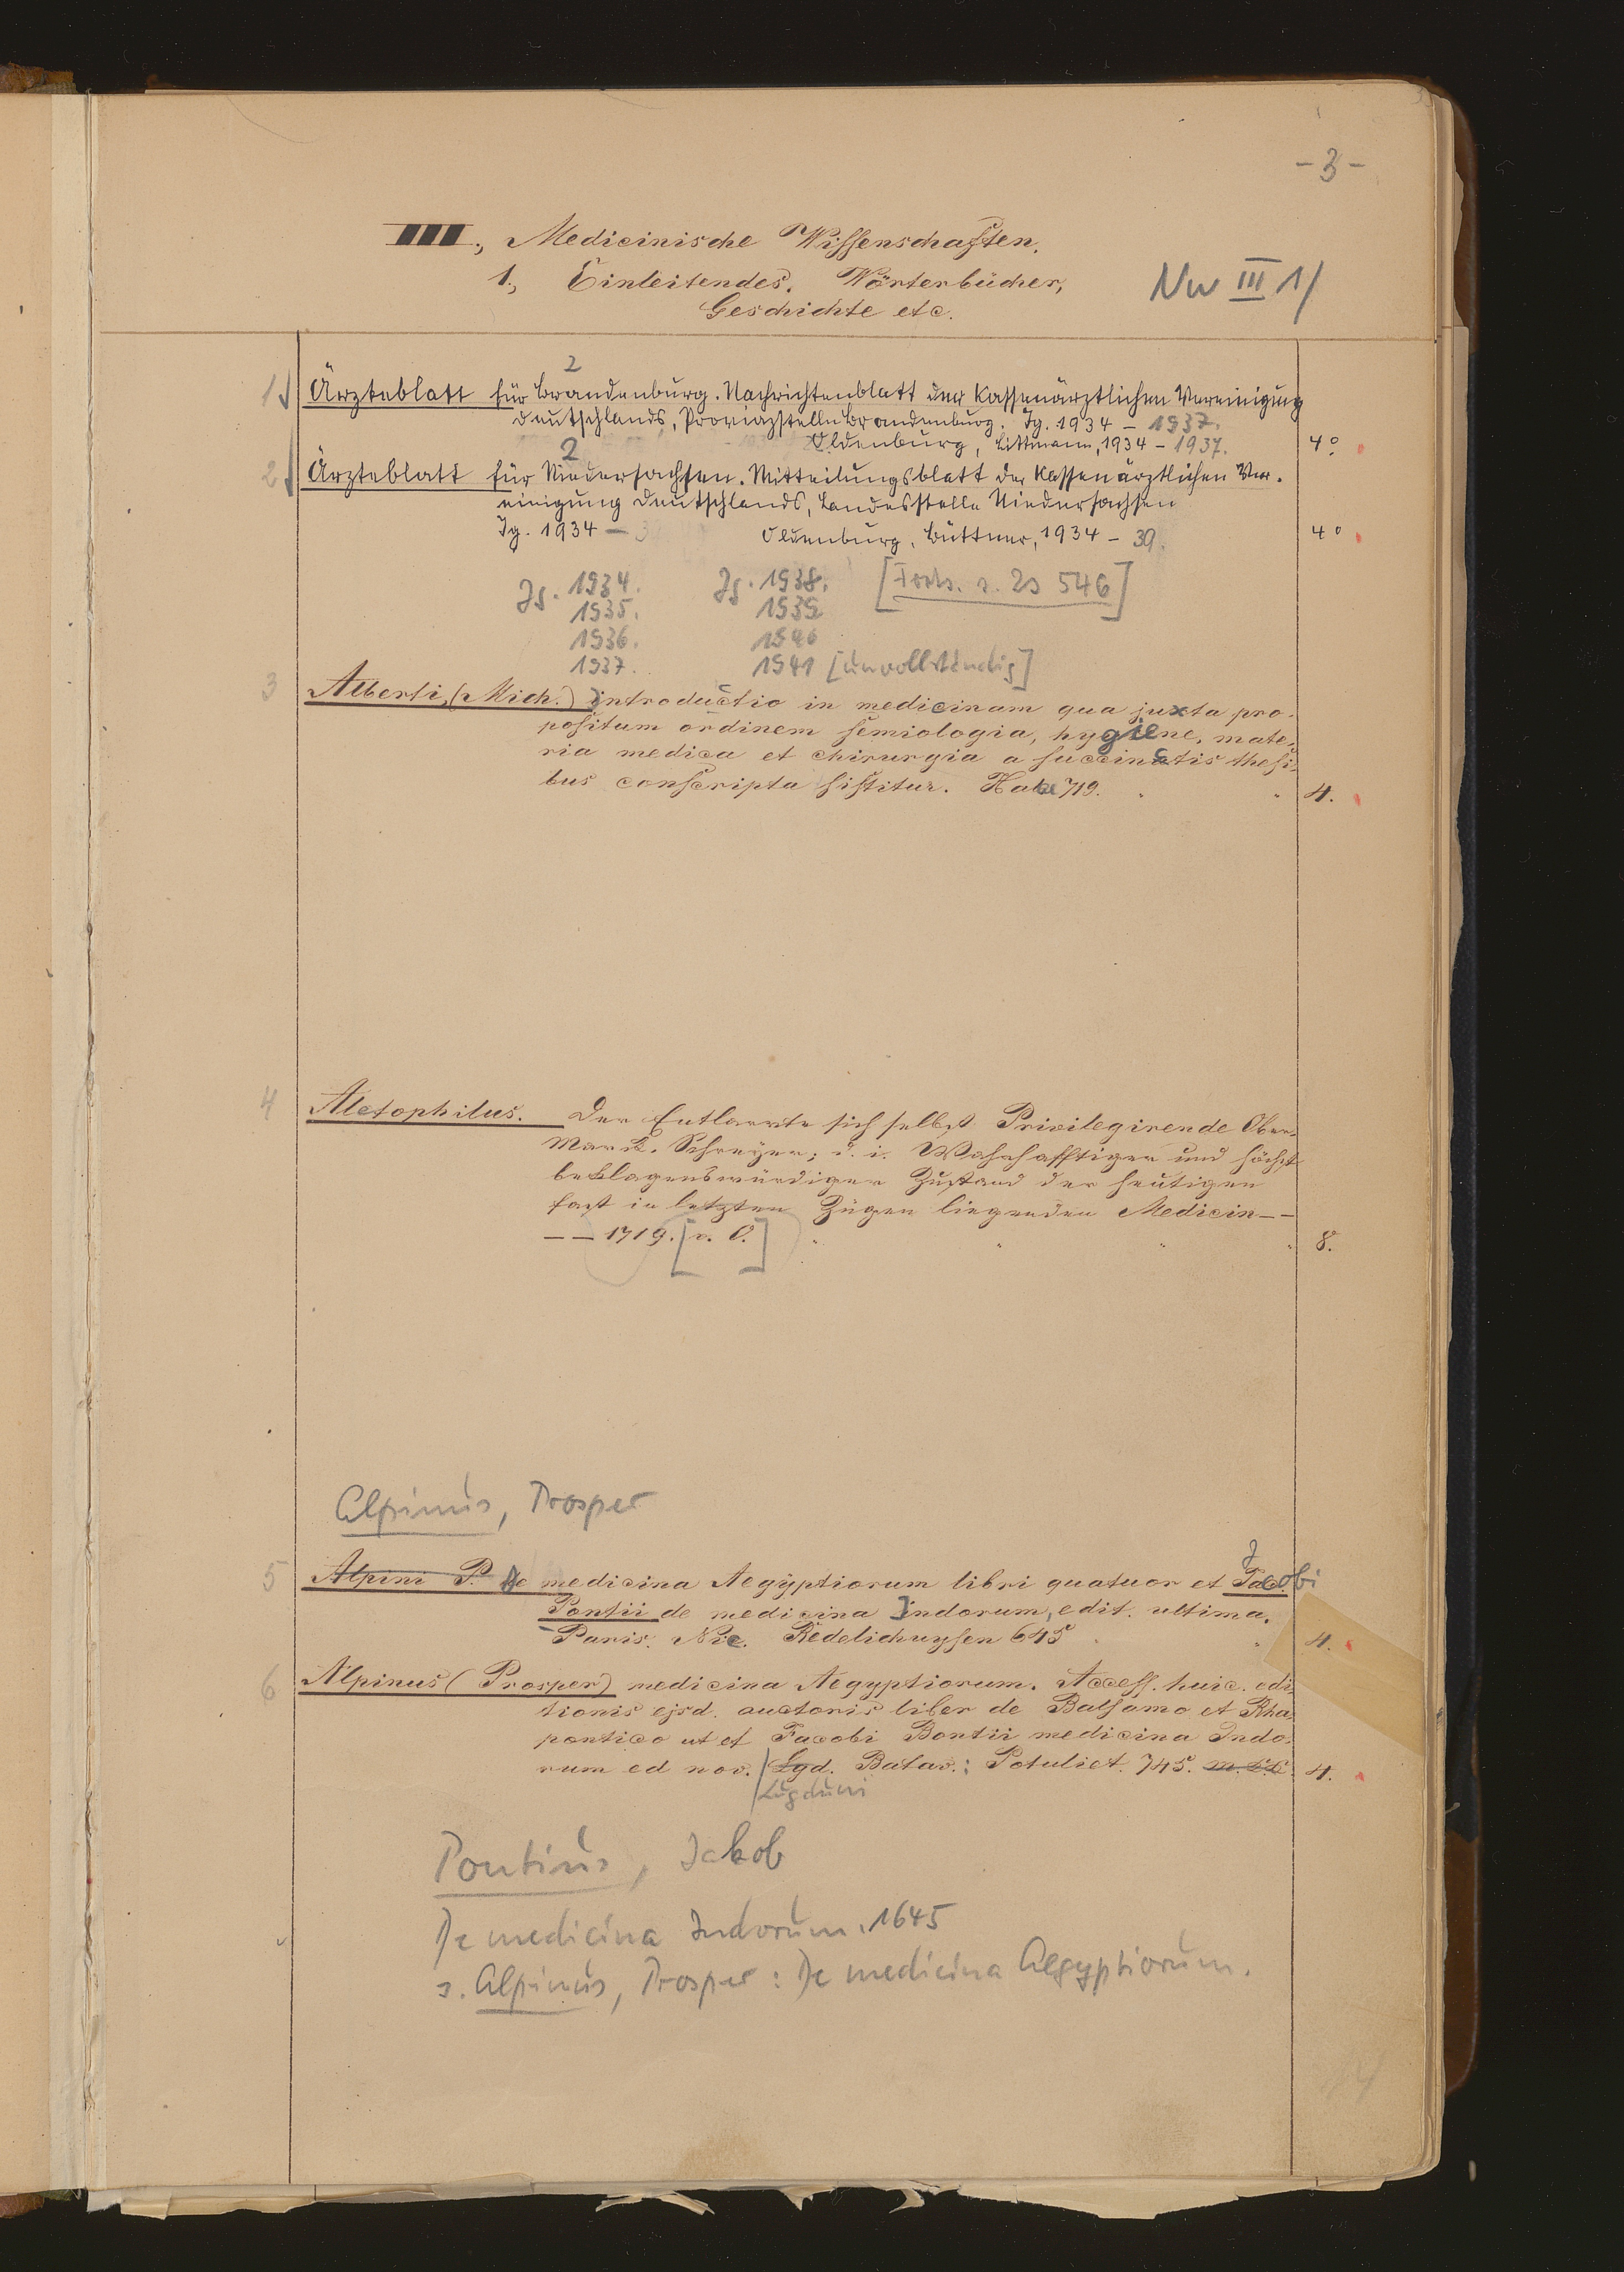 - 3 -
III., Medicinische Wissenschaften.
1., Einleitendes. Wörterbücher,
Geschichte etc.
Nw III 1/
2
1 Ärzteblatt für Brandenburg. Nachrichtenblatt der Kassenärztlichen Vereinigung
Deutschlands, Provinzstelle Brandenburg. Jg. 1934 - 1937.
Oldenburg, Littmann, 1934 - 1937. 4°
2
2 Ärzteblatt für Niedersachsen. Mitteilungsblatt der Kassenärztlichen Ver-
einigung Deutschlands, Landesstelle Niedersachsen
Jg. 1934 - Oldenburg, Büttner, 1934 - 39. 4°
Jg. 1934. Jg. 1938. [Forts. s. Zs 546]
1935. 1939
1936. 1940
1937. 1941 [unvollständig]
3 Alberti, (Mich.) Introductio in medicinam qua juxta pro-
positum ordinem semiologia, hygiene, mate-
ria medica et chirurgia a succinctis thesi-
bus conscripta sistitur. Halae 719. 4.
4 Aletophilus. Der Entlarvte sich selbst Privilegirende Ober-
Marck-Schreyer; d. i. Wahrhafftiger und höchst
beklagenswürdiger Zustand der heutigen
fast in letzten Zügen liegenden Medicin - -
- - 1719. [o. O.] 8.
Alpinus, Prosper
5 Alpini P. De medicina Aegyptiorum libri quatuor et Jacobi
Pontii de medicina Indorum, edit. ultima.
Paris. Nic. Redelichuysen 645 4.
6 Alpinus (Prosper) medicina Aegyptiorum. Access. huic. edi-
tionis ejsd. auctoris liber de Balsamo et Rha-
pontico ut et Jacobi Bontii medicina Indo-
rum ed nov. Lgd. Batav.: Potuliet. 745. 4.
Lugduni
Pontius, Jakob
De medicina Indorum. 1645
s. Alpinus, Prosper: De medicina Aegyptiorum.